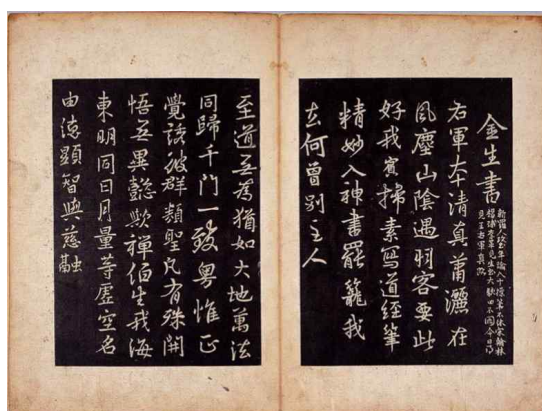 金生書
新羅人年踰八十操筆不休宋翰林
楊球李革見生書大駭曰不圖今日得
見王右軍真跡
右軍本清真蕭灑在
風塵山陰遇羽客要此
好鵝賓掃素寫道經筆
精妙入神書罷籠鵝
去何曾別主人
至道無為猶如大地萬法
同歸千門一致粵惟正
覺誘彼群類聖凡有殊開
悟無異懿歟禪伯生我海
東明同日月量等虛空名
由德顯智與慈融